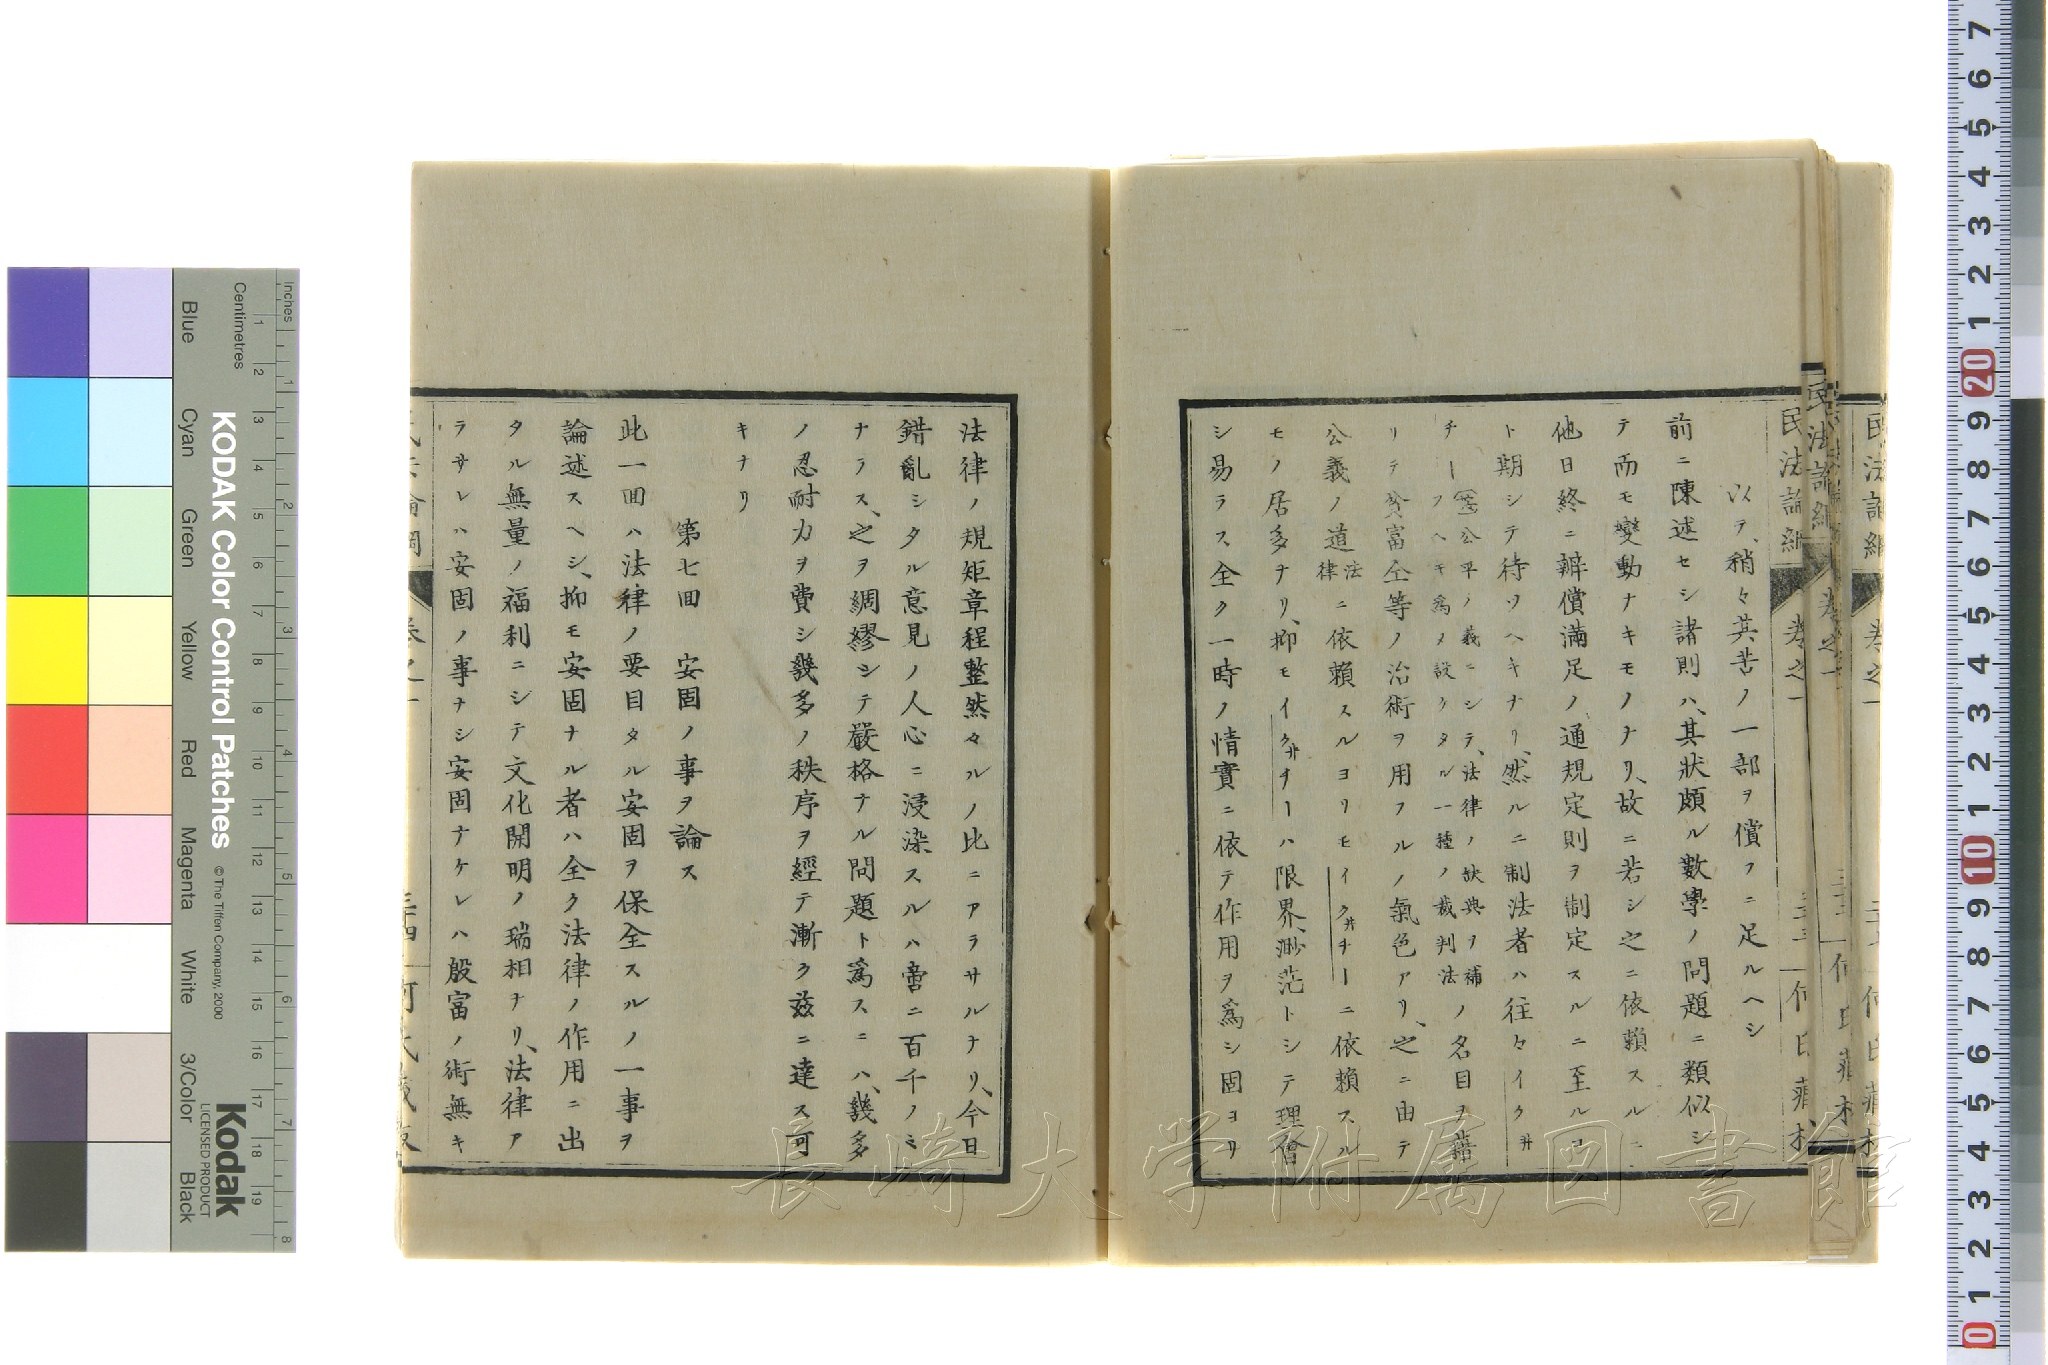 以テ、稍々其苦ノ一部ヲ償フニ足ルヘシ
前ニ陳述セシ諸則ハ、其狀頗ル數學ノ問題ニ類似シ
テ而モ變動ナキモノナリ、故ニ若シ之ニ依賴スルニ
他日終ニ辨償滿足ノ通規定則ヲ制定スルニ至ル
ト期シテ待ツヘキナリ、然ルニ制法者ハ往々イクヰ
チー
公平ノ義ニシテ、法律ノ缺典ヲ補
フヘキ爲メ設ケタル一種ノ裁判法
ノ名目ヲ藉
リテ貧富仝等ノ治術ヲ用フルノ氣色アリ、之ニ由テ
公義ノ道
法
律
ニ依賴スルヨリモイクヰチーニ依賴スル
モノ居多ナリ、抑モイクヰチーハ限界渺茫トシテ理會
シ易ラス全ク一時ノ情實ニ依テ作用ヲ爲シ固ヨリ
民法論綱
卷之一
何氏藏
法律ノ規矩章程整然タルノ比ニアラサルナリ、今日
錯亂シタル意見ノ人心ニ浸染スルハ啻ニ百千ノミ
ナラス、之ヲ綢繆シテ嚴格ナル問題ト爲スニハ、幾多
ノ忍耐力ヲ費シ幾多ノ秩序ヲ經テ漸ク茲ニ達ス可
キナリ
第七回 安固ノ事ヲ論ス
此一回ハ法律ノ要目タル安固ヲ保全スルノ一事ヲ
論述スヘシ、抑モ安固ナル者ハ全ク法律ノ作用ニ出
タル無量ノ福利ニシテ文化開明ノ瑞相ナリ、法律ア
ラサレハ安固ノ事ナシ安固ナケレハ殷富ノ術無キ
KODAK Color Control Patches
© The Tiffen Company, 2000
Kodak
LICENSED PRODUCT
Inches
Centimetres
Blue
Cyan
Green
Yellow
Red
Magenta
White
3/Color
Black
長崎大学附属図書館